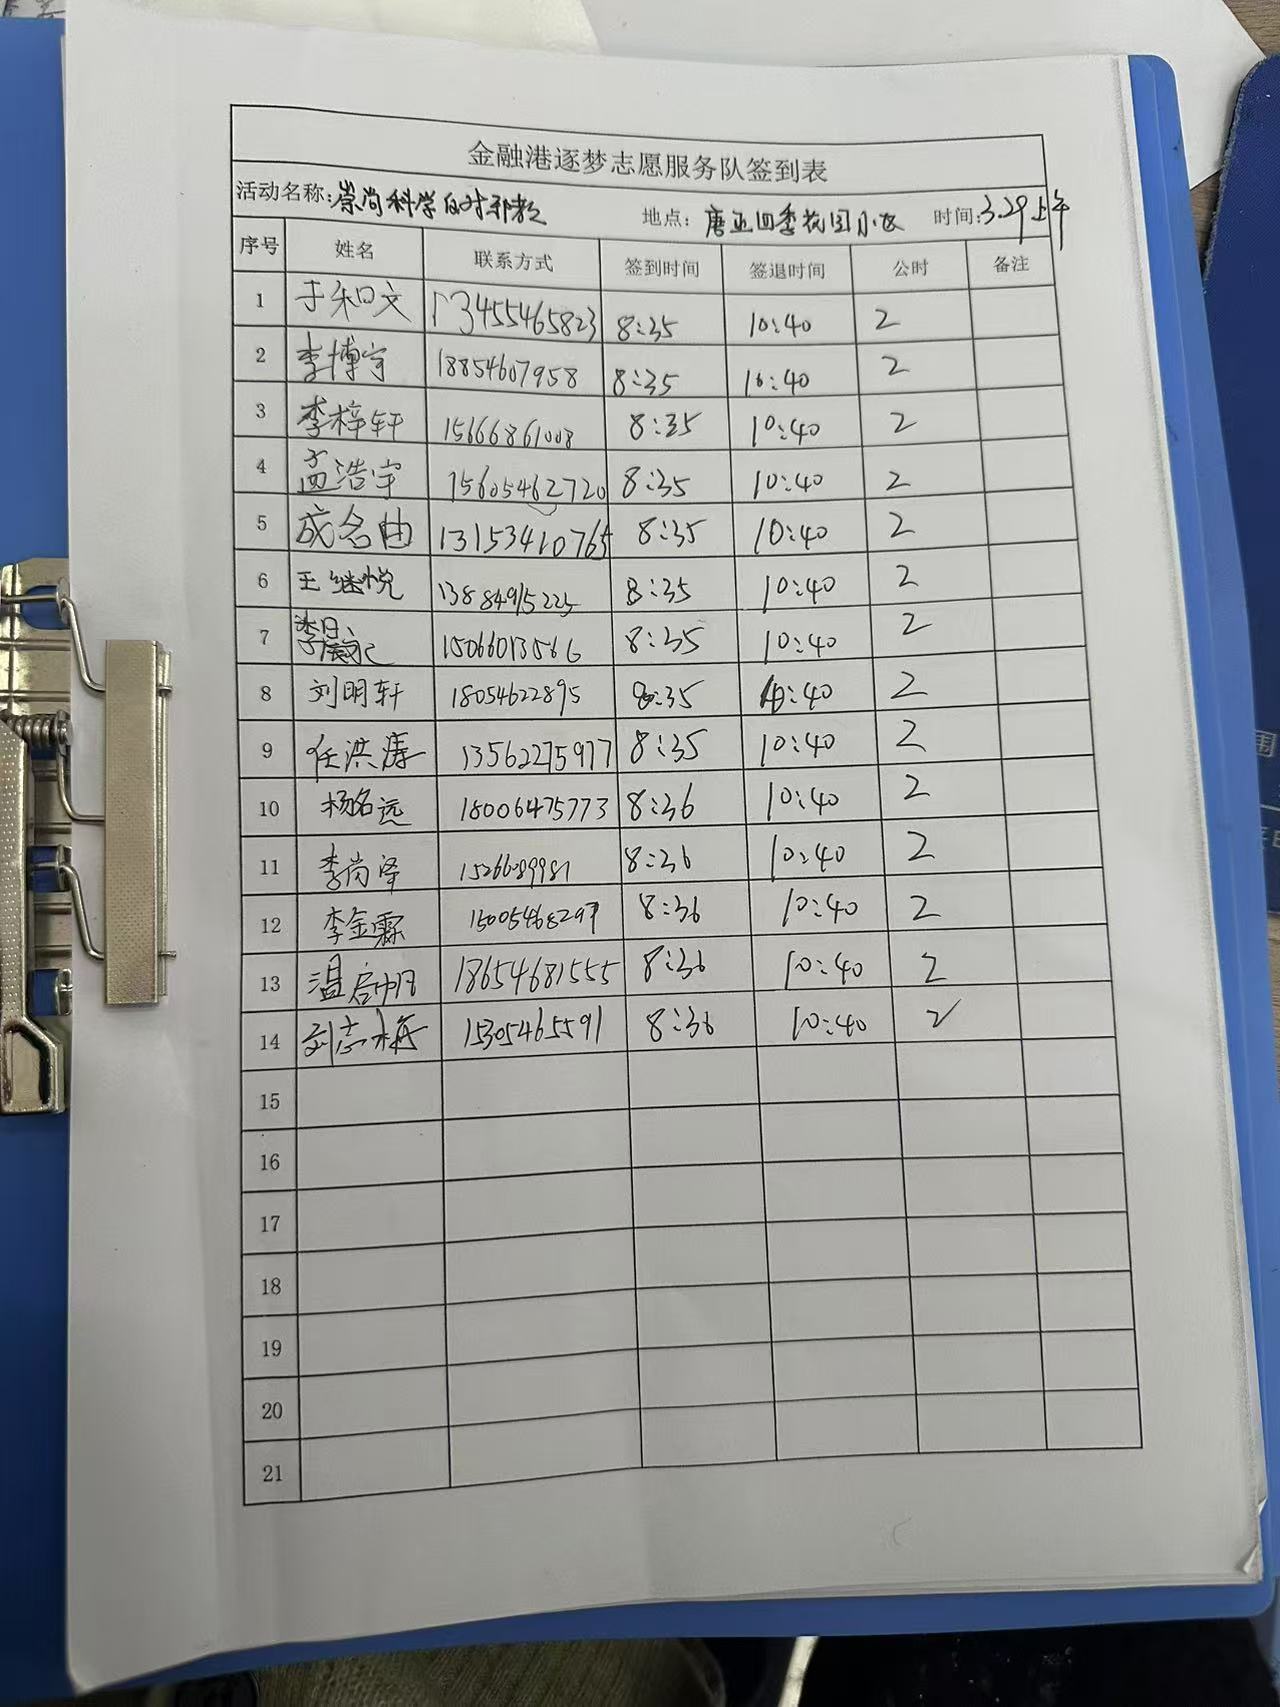 金融港逐梦志愿服务队签到表
活动名称:崇尚科学反对邪教 地点: 唐正四季花园小区 时间:3.29上午
序号 姓名 联系方式 签到时间 签退时间 公时 备注
1 于和文 13455465823 8:35 10:40 2
2 李博宇 18854607958 8:35 10:40 2
3 李梓轩 15666861008 8:35 10:40 2
4 孟浩宇 15605462720 8:35 10:40 2
5 成名曲 13153410765 8:35 10:40 2
6 王继悦 13884915225 8:35 10:40 2
7 15066013566 8:35 10:40 2
8 刘明轩 18054622895 8:35 10:40 2
9 任洪涛 13562275977 8:35 10:40 2
10 杨名远 18006475773 8:36 10:40 2
11 李尚泽 15266089981 8:36 10:40 2
12 李金霖 15005468297 8:36 10:40 2
13 温启帆 18654681555 8:36 10:40 2
14 刘志梅 15305465591 8:36 10:40 2
15
16
17
18
19
20
21